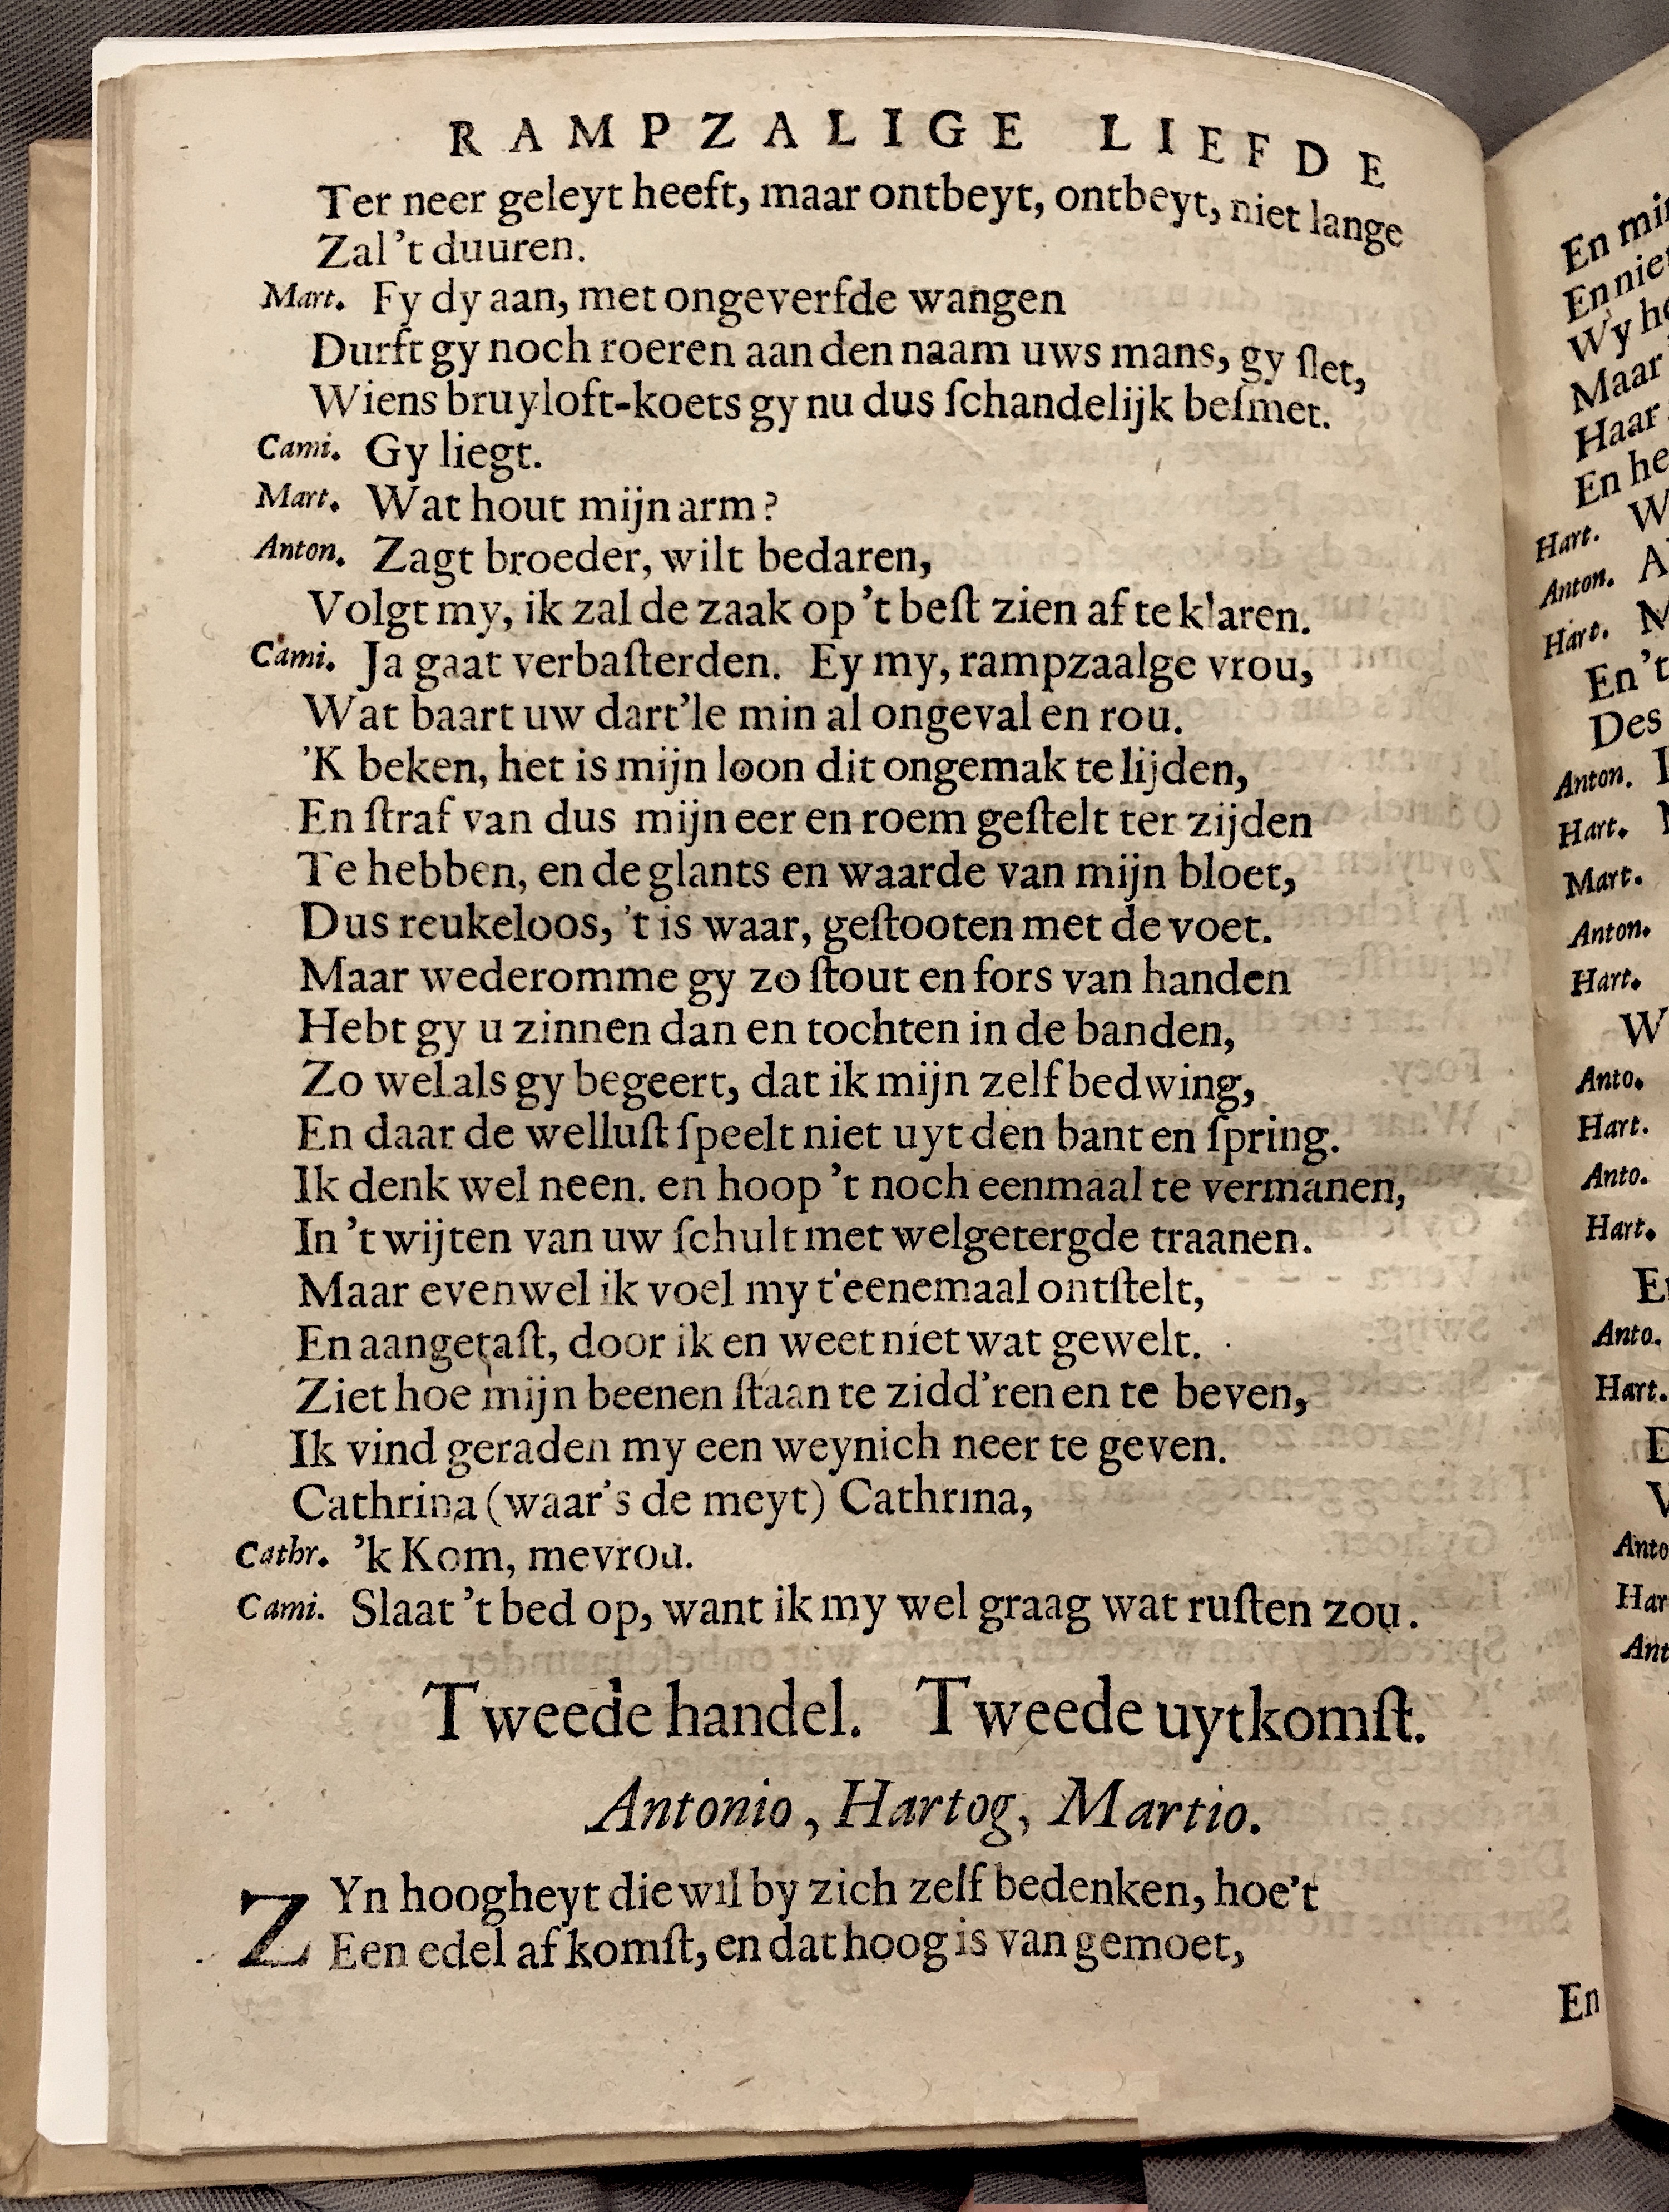 RAMPZALIGE LIEFDE
Ter neer geleyt heeft, maar ontbeyt, ontbeyt, niet lange
Zal 't duuren.
Mart. Fy dy aan, met ongeverfde wangen
Durft gy noch roeren aan den naam uws mans, gy ſlet,
Wiens bruyloft-koets gy nu dus ſchandelijk beſmet.
Cami. Gy liegt.
Mart. Wat hout mijn arm?
Anton. Zagt broeder, wilt bedaren,
Volgt my, ik zal de zaak op 't beſt zien af te klaren.
Cami. Ja gaat verbaſterden. Ey my, rampzaalge vrou,
Wat baart uw dart'le min al ongeval en rou.
'K beken, het is mijn loon dit ongemak te lijden,
En ſtraf van dus mijn eer en roem geſtelt ter zijden
Te hebben, en de glants en waarde van mijn bloet,
Dus reukeloos, 't is waar, geſtooten met de voet.
Maar wederomme gy zo ſtout en fors van handen
Hebt gy u zinnen dan en tochten in de banden,
Zo wel als gy begeert, dat ik mijn zelf bedwing,
En daar de welluſt ſpeelt niet uyt den bant en ſpring.
Ik denk wel neen. en hoop 't noch eenmaal te vermanen,
In 't wijten van uw ſchult met welgetergde traanen.
Maar evenwel ik voel my t'eenemaal ontſtelt,
En aangetaſt, door ik en weet niet wat gewelt.
Ziet hoe mijn beenen ſtaan te zidd'ren en te beven,
Ik vind geraden my een weynich neer te geven.
Cathrina (waar's de meyt) Cathrina,
Cathr. 'k Kom, mevrou.
Cami. Slaat 't bed op, want ik my wel graag wat ruſten zou.
Tweede handel. Tweede uytkomſt.
Antonio, Hartog, Martio.
ZYn hoogheyt die wil by zich zelf bedenken, hoe't
Een edel af komſt, en dat hoog is van gemoet,
En
En
En niet
Wy
Maar
Haar
En
Hart.
Anton.
Hart.
En 't
Des
Anton.
Hart.
Mart.
Anton.
Hart.
Anto.
Hart.
Anto.
Hart.
Anto.
Hart.